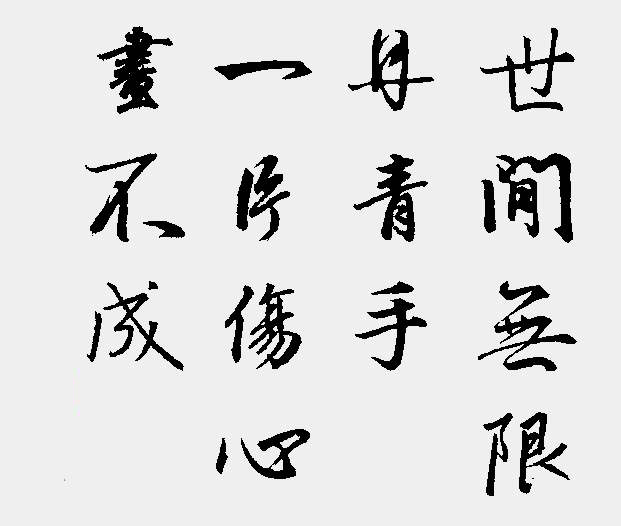 世間無限
丹青手
一片傷心
畫不成